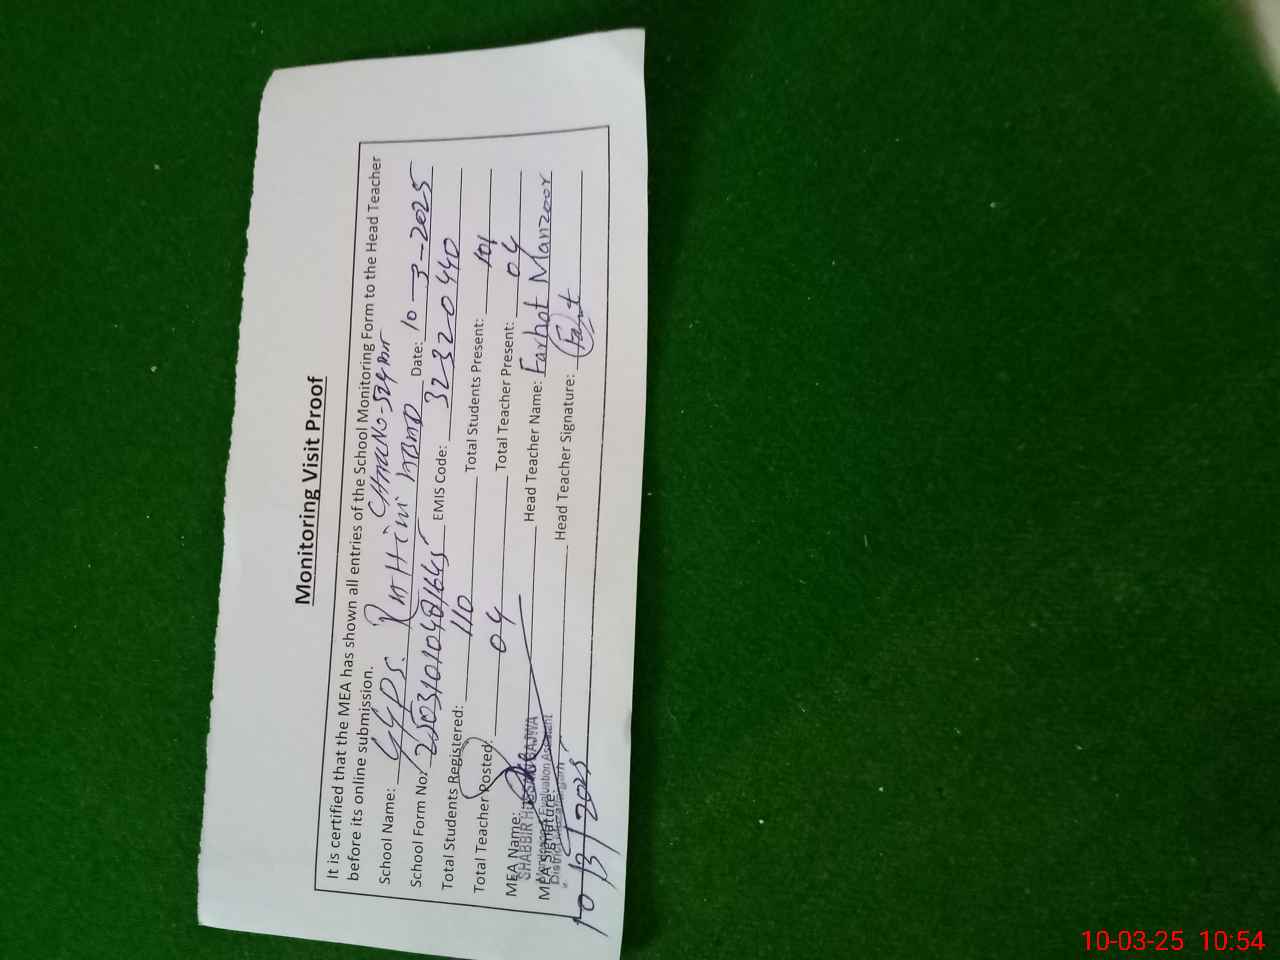 Monitoring Visit Proof
It is certified that the MEA has shown all entries of the School Monitoring Form to the Head Teacher
before its online submission.
School Name: GGPS. RAHIMABAD
School Form No: Date: 10-3-2025
EMIS Code: 32320440
Total Students Registered: 110 Total Students Present: 101
Total Teacher Posted: 04 Total Teacher Present: 04
MEA Name: Head Teacher Name: Farhat Manzoor
SHABBIR HUSSAIN BAJWA
Monitoring & Evaluation Assistant
MEA Signature: Head Teacher Signature: Farhat
10/3/2025
10-03-25 10:54